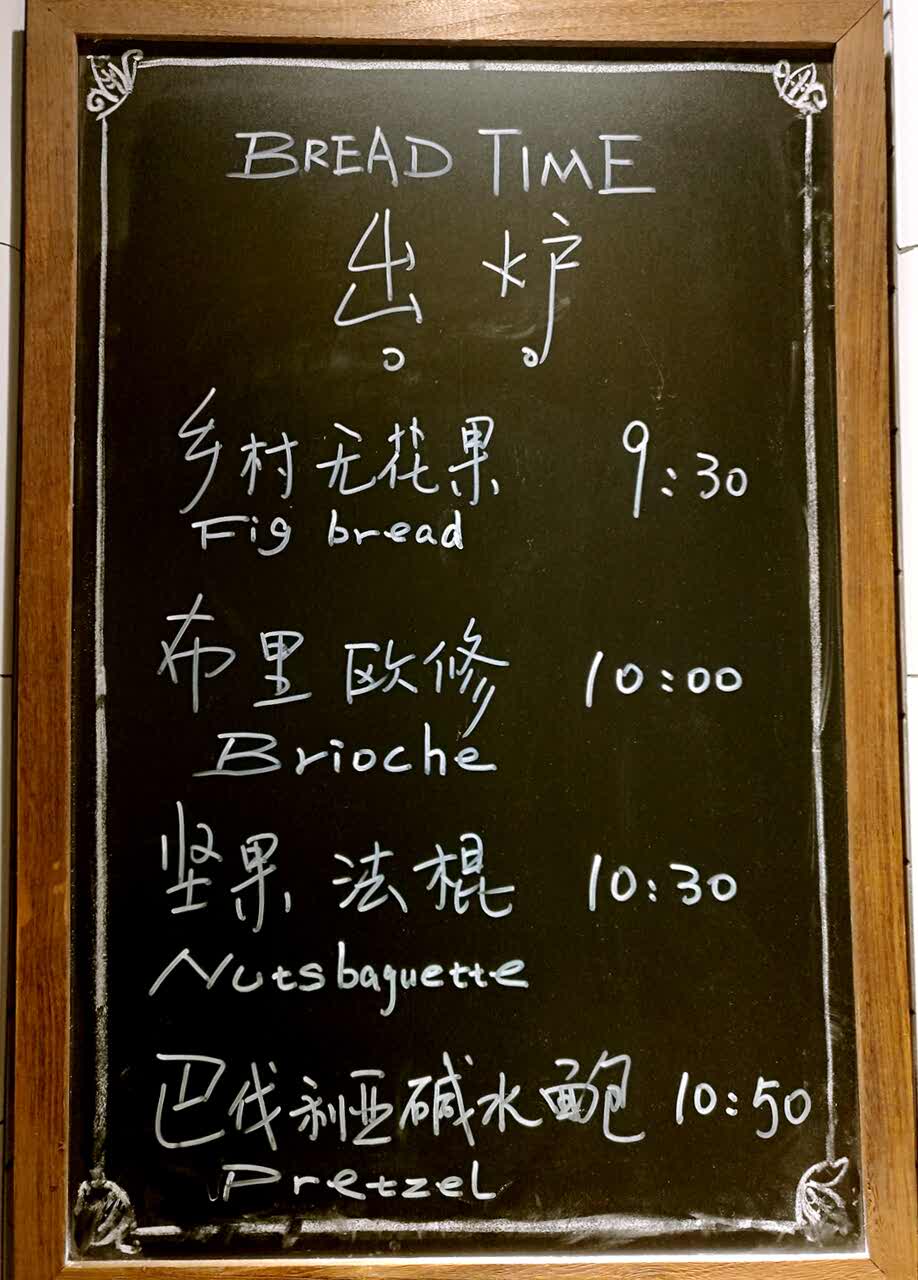 BREAD TIME
出炉
乡村无花果 9:30
Fig bread
布里欧修 10:00
Brioche
坚果法棍 10:30
Nutsbaguette
巴伐利亚碱水面包 10:50
Pretzel